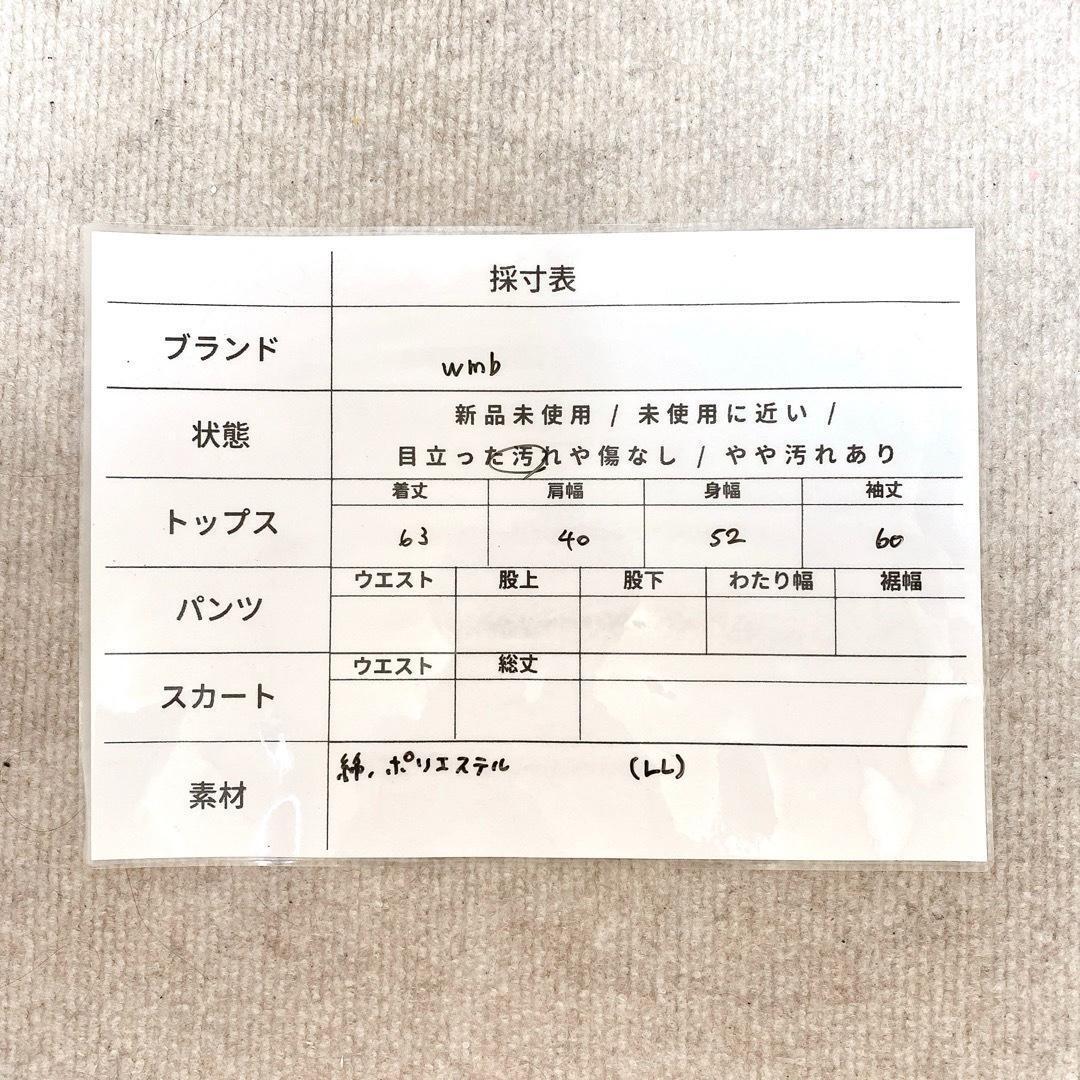 採寸表
ブランド
wmb
状態
新品未使用 / 未使用に近い /
目立った汚れや傷なし / やや汚れあり
トップス
着丈 肩幅 身幅 袖丈
63 40 52 60
パンツ
ウエスト 股上 股下 わたり幅 裾幅
スカート
ウエスト 総丈
素材
綿、ポリエステル (LL)